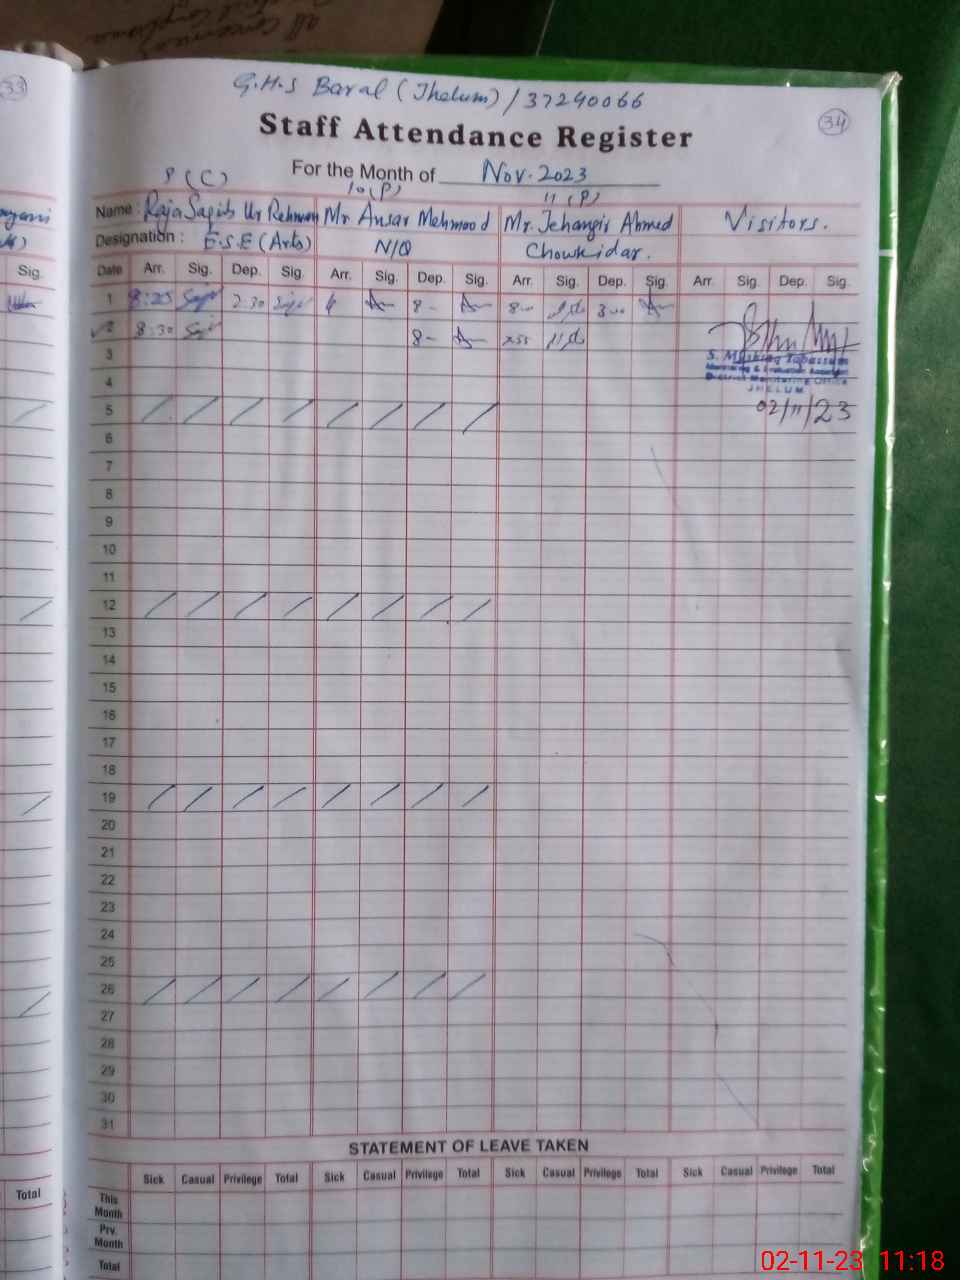 33
G.H.S Baral (Jhelum) / 37240066
34
Staff Attendance Register
For the Month of Nov. 2023
8 (C) 10(P) 11 (P)
Name : Raja Saqib Ur Rehman Mr. Ansar Mehmood Mr. Jehangir Ahmed Visitors.
Designation : E.S.E (Arts) N/Q Chowkidar.
Sig. Date Arr. Sig. Dep. Sig. Arr. Sig. Dep. Sig. Arr. Sig. Dep. Sig. Arr. Sig. Dep. Sig.
1 8:25 2:30 8- 8-00 3-00
2 8:30 8- 7:55
3
S.
4
District Monitoring Office
JHELUM
5 02/11/23
6
7
8
9
10
11
12
13
14
15
16
17
18
19
20
21
22
23
24
25
26
27
28
29
30
31
STATEMENT OF LEAVE TAKEN
Sick Casual Privilege Total Sick Casual Privilege Total Sick Casual Privilege Total Sick Casual Privilege Total
Total This Month
Prv. Month
Total
02-11-23 11:18